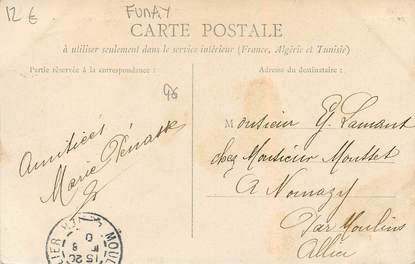 12 €
FUMAY
CARTE POSTALE
à utiliser seulement dans le service intérieur (France, Algérie et Tunisie)
Partie réservée à la correspondance :
Adresse du destinataire :
Amitiées
Marie
Monsieur G. Lamant
chez Monsieur Mousset
A Nomazy
Par Moulins
Allier
MOUL
15 20